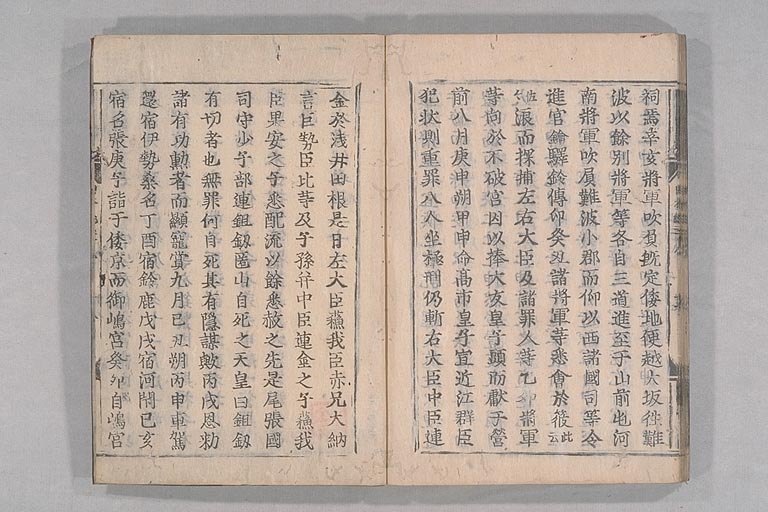 祠焉辛亥將軍吹負旣定倭地便越大坂徃難
波以餘別將軍等各自三道進至于山前屯河
南將軍吹負難波小郡而仰以西諸國司等令
進官鑰驛鈴傳印癸丑諸將軍等悉會於筱此云
佐佐浪而探捕左右大臣及諸罪人等乙卯將軍
等向於不破宮因以捧大友皇子頭而獻于營
前八月庚申朔甲申命高市皇子宣近江群臣
犯狀則重罪八人坐極刑仍斬右大臣中臣連
金於淺井田根是日左大臣蘓我臣赤兄大納
言巨勢臣比等及子孫幷中臣連金之子蘓我
臣果安之子悉配流以餘悉赦之先是尾張國
司守少子部連鉏鈎匿山自死之天皇曰鉏鈎
有功者也無罪何自死其有隱謀歟丙戌恩勑
諸有功勳者而顯寵賞九月己丑朔丙申車駕
還宿伊勢桑名丁酉宿鈴鹿戊戌宿阿閇己亥
宿名張庚子詣于倭京而御嶋宮癸卯自嶋宮